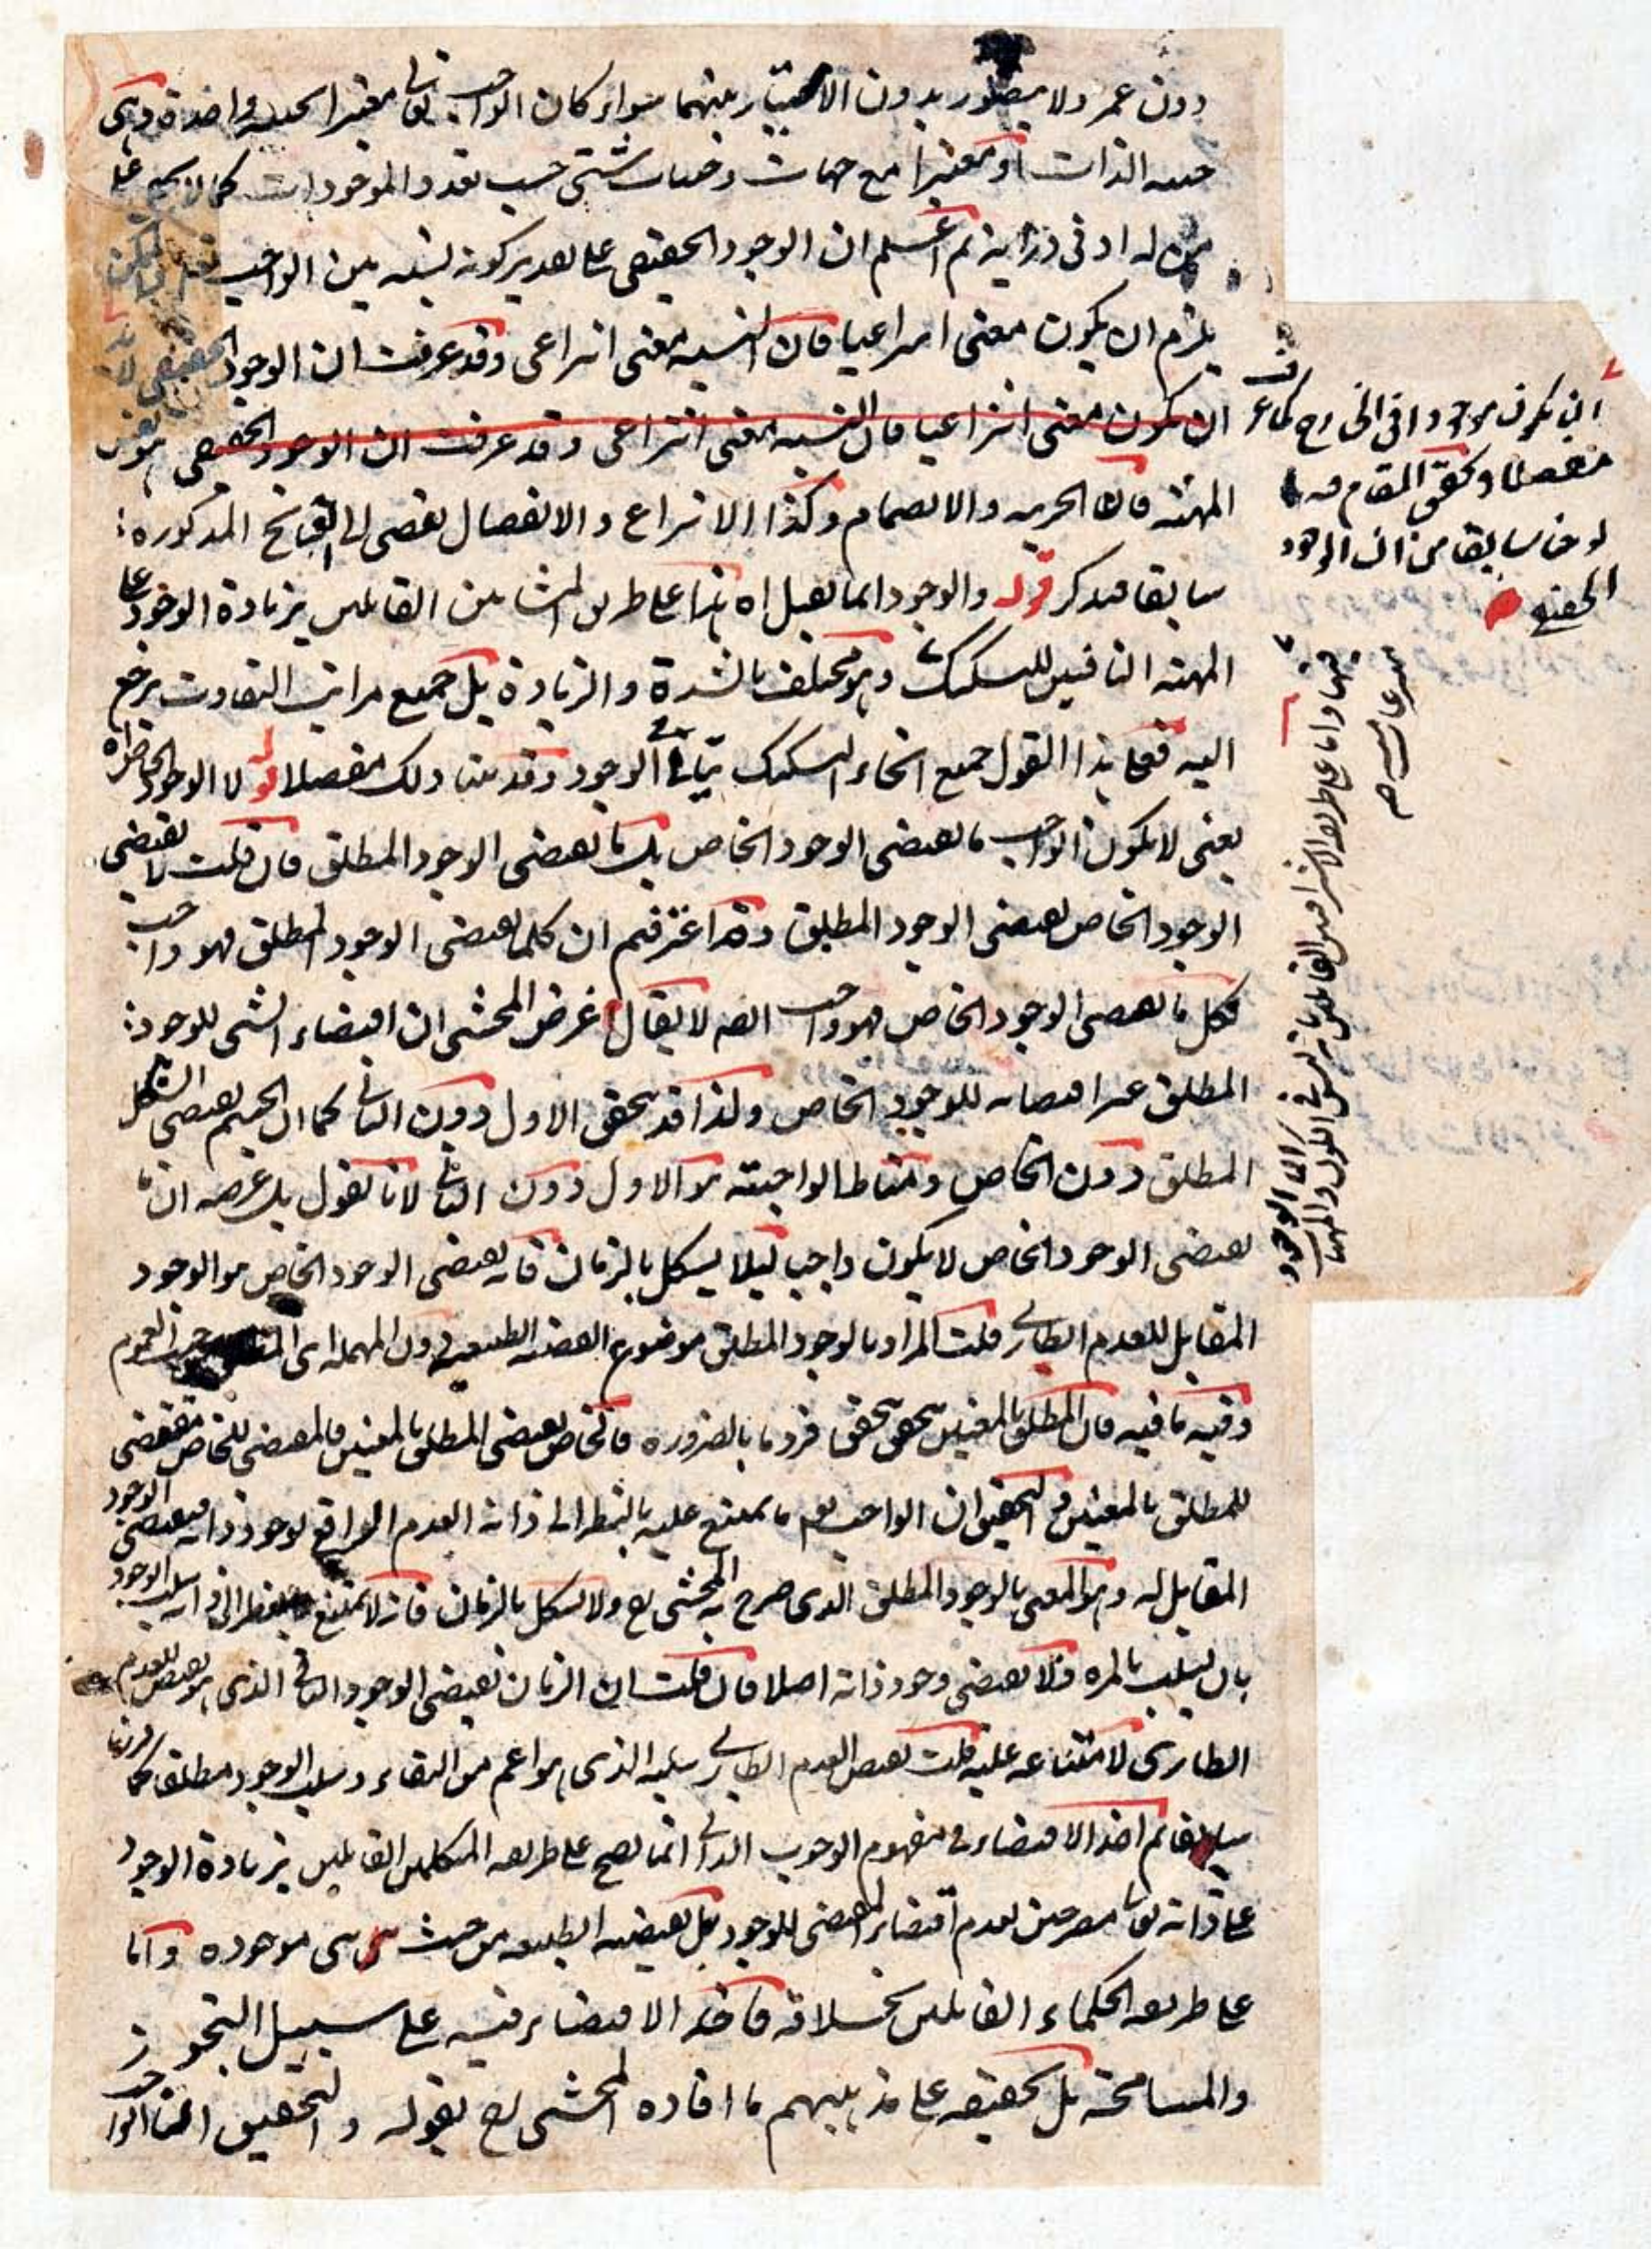 دون عمر ولا يتصور بدون الامتياز بينهما سواء كان الواجب تعالى معتبرا بحيثية واحدة وهى
حيثية الذات او معتبرا مع جهات وحيثيات شتى حسب تعدد الموجودات كما لا يخفى على
من له ادنى دراية ثم اعلم ان الوجود الحقيقى على تقدير كونه نسبة بين الواجب
يلزم ان يكون معنى انتزاعيا فان النسبة معنى انتزاعى وقد عرفت ان الوجود الحقيقى لابد
ان يكون معنى انتزاعيا فان النسبة معنى انتزاعى وقد عرفت ان الوجود الحقيقى هو نفس
المهية فان الجزئية والانضمام وكذا الانتزاع والانفصال تفضى الى القبائح المذكورة
سابقا فتذكر قوله والوجود انما يقبل اه هذا على طريق المشائين القائلين بزيادة الوجود على
المهية النافين للتشكيك وهو مختلف بالشدة والزيادة بل جميع مراتب التفاوت يرجع
اليه فعلى هذا القول جميع انحاء التشكيك يتاتى الوجود وقد بينا ذلك مفصلا قوله لا الوجود الخاص اه
يعنى لا يكون الواجب ما يقتضى الوجود الخاص بل ما يقتضى الوجود المطلق فان قلت لا يقتضى
الوجود الخاص يقتضى الوجود المطلق وقد اعترفتم ان كلما يقتضى الوجود المطلق فهو واجب
فكل ما يقتضى الوجود الخاص فهو واجب ايضه لا يقال غرض المحشى ان اقتضاء الشى للوجود
المطلق غير اقتضائه للوجود الخاص ولذا قد يتحقق الاول دون الثانى كما ان الجسم يقتضى الشكل
المطلق دون الخاص ومناط الواجبية هو الاول دون الثانى لانا نقول بل غرضه ان ما
يقتضى الوجود الخاص لا يكون واجبا ليلا يشكل بالزمان فانه يقتضى الوجود الخاص هو الوجود
المقابل للعدم الطارى قلت المراد بالوجود المطلق موضوع القضية الطبيعية دون المهملة اى من حيث العموم
وفيه ما فيه فان المطلق بالمعنيين يتحقق بتحقق فرد ما بالضرورة فالخاص يقتضى المطلق بالمعنيين فالمقتضى للخاص مقتضى
للمطلق بالمعنيين والتحقيق ان الواجب تعم ما يمتنع عليه بالنظر الى ذاته العدم الواقع لوجود ذاته فيقتضى الوجود
المقابل له وهو المعنى بالوجود المطلق الذى صرح به المحشى رح ولا يشكل بالزمان فانه لا يمتنع بالنظر الى ذاته سلب الوجود
بان يسلب بالمرة فلا يقتضى وجود ذاته اصلا فان قلت ان الزمان يقتضى الوجود الثانى الذى هو نقيض للعدم
الطارى لامتناعه عليه قلت نقيض العدم الطارى سلبه الذى هو اعم من البقاء وسلب الوجود مطلقا كما قررنا
سابقا ثم اخذ الاقتضاء فى مفهوم الوجوب الذاتى انما يصح على طريقة المتكلمين القائلين بزيادة الوجود
على ذاته تعالى مصرحين بعدم اقتضاء المقتضى للوجود بل يقتضيه الطبيعة من حيث هى هى موجودة واما
على طريقة الحكماء القائلين بخلافه فاخذ الاقتضاء فيه على سبيل التجوز
والمسامحة بل تحقيقه على مذهبهم ما افاده المحشى رح بقوله والتحقيق اه الواجب
ان يكون موجودا فى الخارج كما عرفت
مفصلا وتحقق المقام فيه ما
لوحنا سابقا من ان الوجود
الحقيقى
منها واما على طريقة الاشراقيين القائلين بان التشكيك فى الكون والمهيات